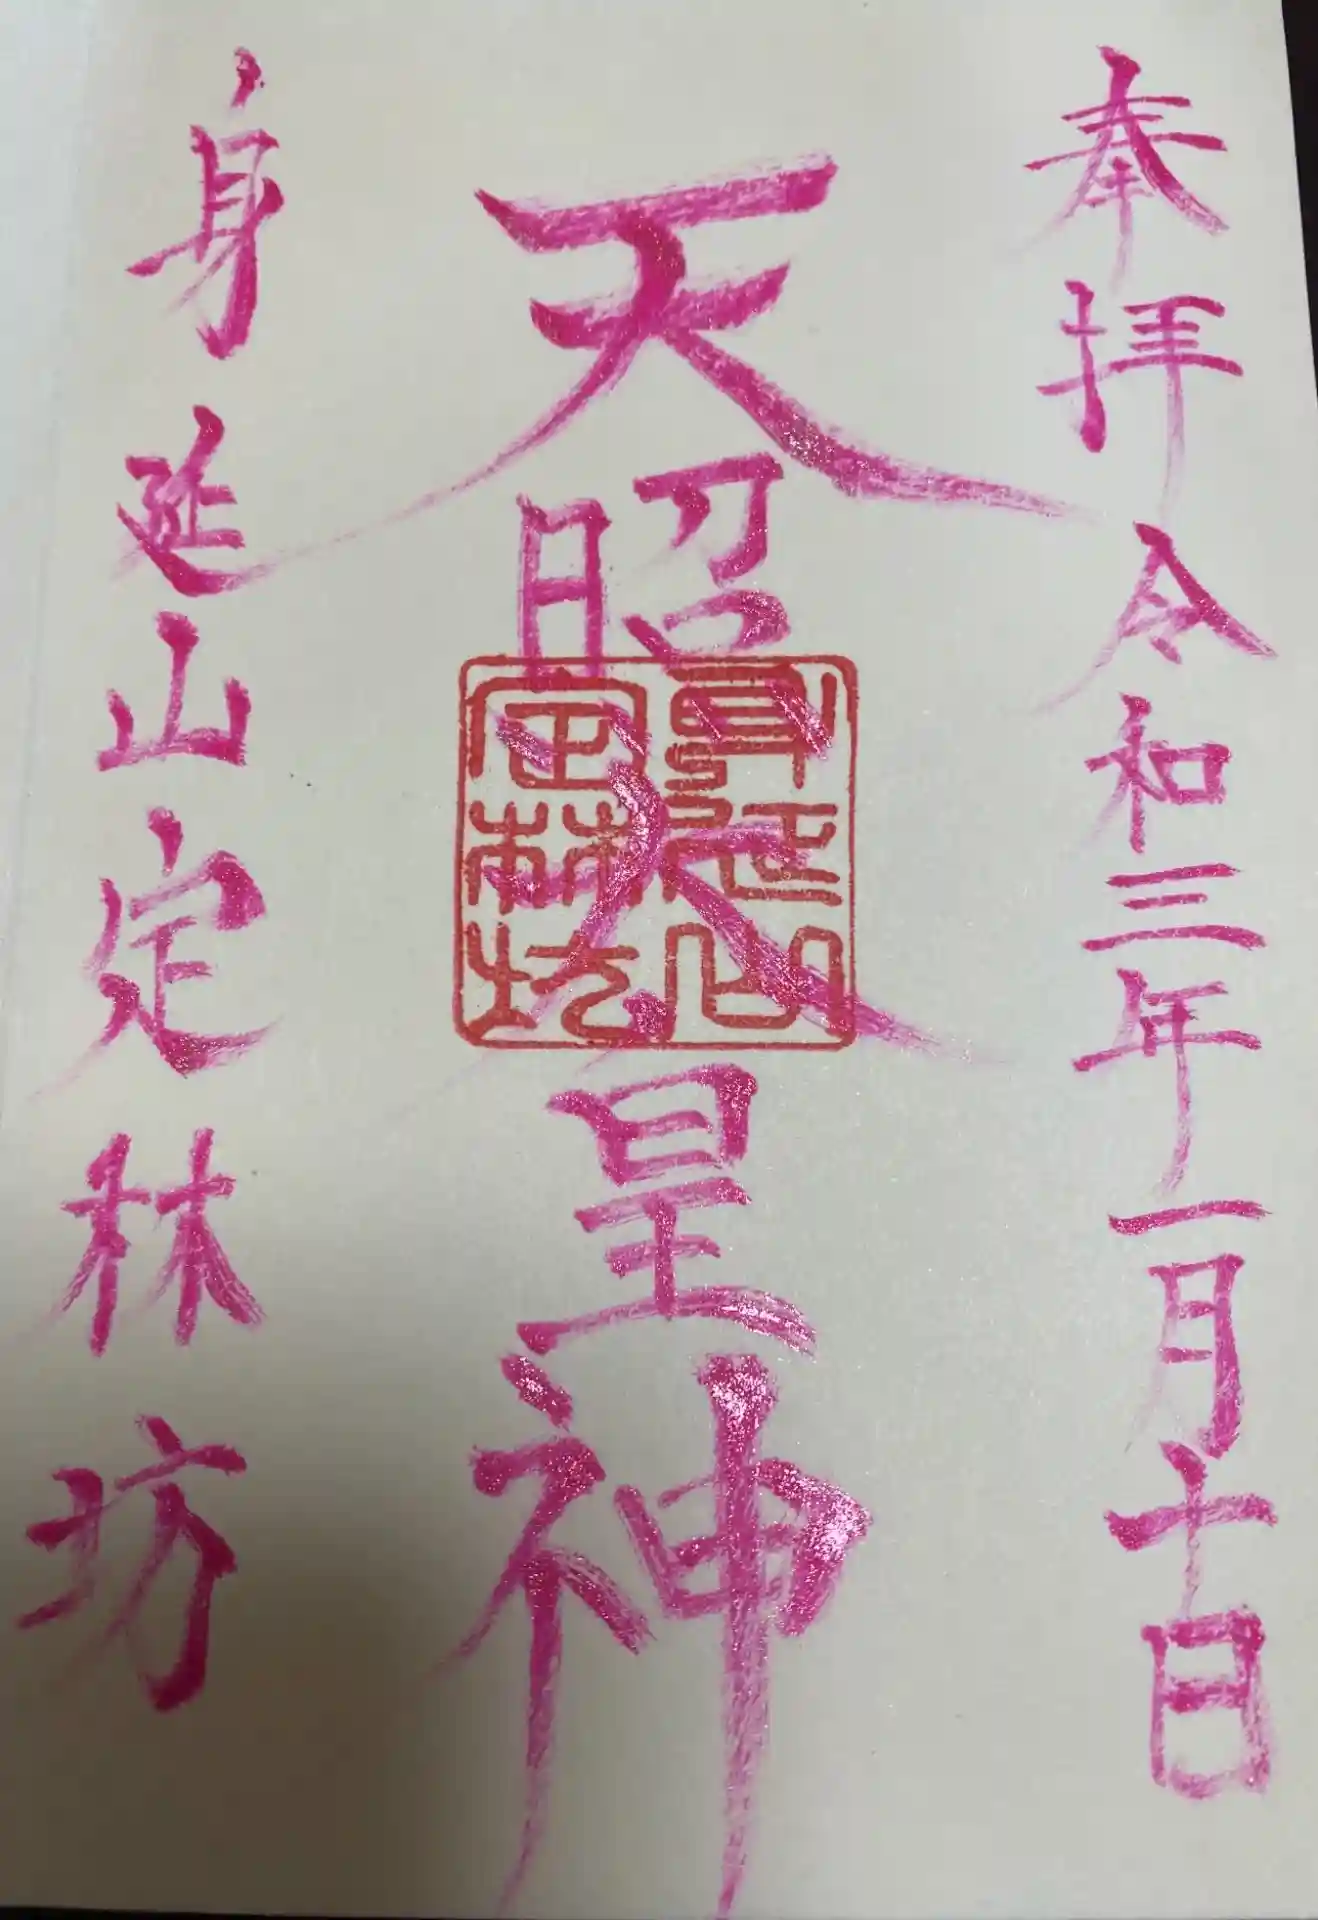 奉拝 令和三年一月十日
天照大皇神
身延山定林坊
身延山
定林坊